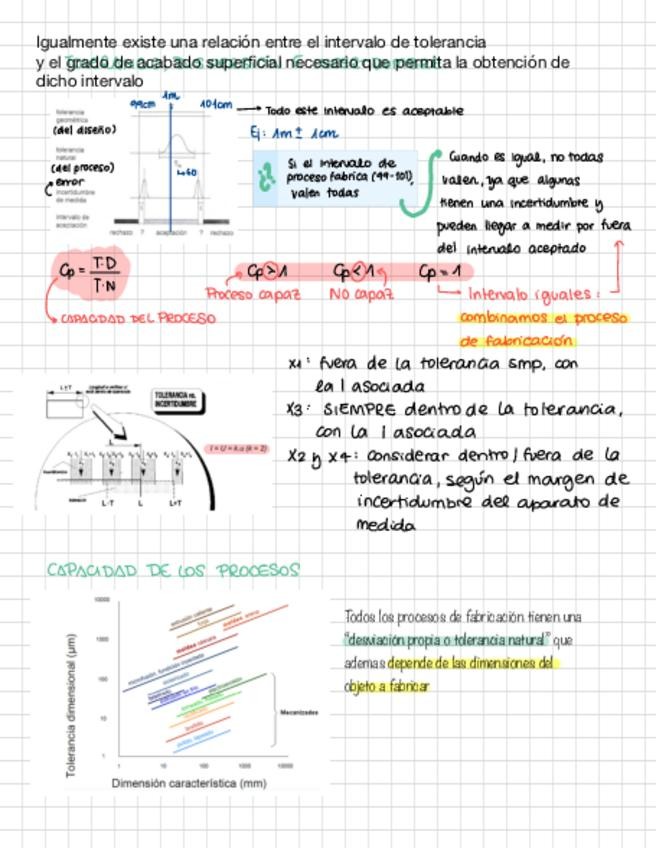 Igualmente existe una relación entre el intervalo de tolerancia
y el grado de acabado superficial necesario que permita la obtención de
dicho intervalo
99cm 1m 101cm → Todo este intervalo es aceptable
tolerancia
geométrica
(del diseño)
Ej: 1m ± 1cm
tolerancia
natural
(del proceso)
error
incertidumbre
de medida
intervalo de
aceptación
rechazo ? aceptación ? rechazo
Si el intervalo de
proceso fabrica (99-101),
valen todas
Cuando es igual, no todas
valen, ya que algunas
tienen una incertidumbre y
pueden llegar a medir por fuera
del intervalo aceptado
Cp = T·D / T·N
Cp > 1 Cp < 1 Cp = 1
Proceso capaz NO capaz Intervalo iguales:
combinamos el proceso
de fabricación
CAPACIDAD DEL PROCESO
x1: fuera de la tolerancia smp, con
la I asociada
x3: SIEMPRE dentro de la tolerancia,
con la I asociada
x2 y x4: considerar dentro/fuera de la
tolerancia, según el margen de
incertidumbre del aparato de
medida
L±T
TOLERANCIA vs.
INCERTIDUMBRE
L
L-T L L+T
CAPACIDAD DE LOS PROCESOS
Todos los procesos de fabricación tienen una
"desviación propia o tolerancia natural" que
ademas depende de las dimensiones del
objeto a fabricar
Tolerancia dimensional (µm)
10000
1000
100
10
1
extrusión caliente
forja
moldeo arena
moldeo cáscara
Mecanizados
1 10 100 1000 10000
Dimensión característica (mm)